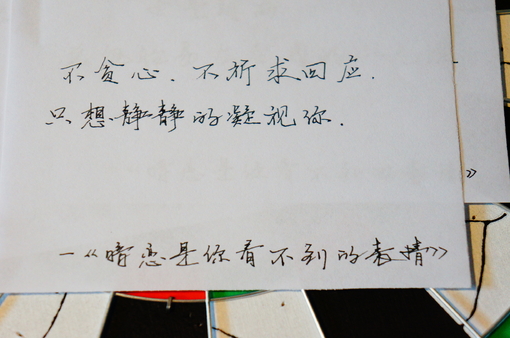 不贪心.不祈求回应.
只想静静的凝视你.
一《暗恋是你看不到的表情》
》